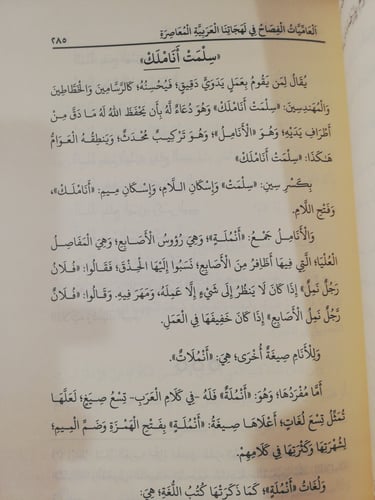 العَامِّيَّاتُ الْفِصَاحُ فِي لَهَجَاتِنَا الْعَرَبِيَّةِ الْمُعَاصِرَةِ ٢٨٥
«سِلْمَتْ أَنَامْلَكْ»
يُقَالُ لِمَن يَقُومُ بِعَمَلٍ يَدَوِيٍّ دَقِيقٍ؛ فَيُحْسِنُهُ؛ كَالرَّسَّامِينَ وَالْخَطَّاطِينَ
وَالْمُهَنْدِسِينَ: «سِلْمَتْ أَنَامْلَكْ» وَهُوَ دُعَاءٌ لَهُ بِأَن يَحْفَظَ اللهُ لَهُ مَا دَقَّ مِنْ
أَطْرَافِ يَدَيْهِ؛ وَهُوَ «الْأَنَامِلُ»؛ وَهُوَ تَرْكِيبٌ مُحْدَثٌ؛ وَيَنطِقُهُ الْعَوَامُّ
هَـٰكَذَا: «سِلْمَتْ أَنَامْلَكْ»
بِكَسْرِ سِينِ: «سِلْمَتْ» وَإِسْكَانِ الـلَّامِ، وَإِسْكَانِ مِيمِ: «أَنَامْلَكْ»،
وَفَتْحِ اللَّامِ.
وَالْأَنَامِلُ جَمْعُ: «أَنْمُلَةٍ»؛ وَهِيَ رُؤُوسُ الْأَصَابِعِ؛ وَهِيَ الْمَفَاصِلُ
الْعُلْيَا؛ الَّتِي فِيهَا أَظَافِرُ مِنَ الْأَصَابِعِ؛ نَسَبُوا إِلَيْهَا الْحِذْقَ؛ فَقَالُوا: «فُلَانٌ
رَجُلٌ نَمِلٌ» إِذَا كَانَ لَا يَنظُرُ إِلَى شَيْءٍ إِلَّا عَمِلَهُ، وَمَهَرَ فِيهِ. وَقَالُوا: «فُلَانٌ
رَّجُلٌ نَمِلُ الْأَصَابِعِ» إِذَا كَانَ خَفِيفَهَا فِي الْعَمَلِ.
وَلِلْأَنَامِ صِيغَةٌ أُخْرَى؛ هِيَ: «أَنْمُلَاتٌ».
أَمَّا مُفْرَدُهَا؛ وَهُوَ: «أَنْمُلَةٌ» فَلَهُ -فِي كَلَامِ الْعَرَبِ- تِسْعُ صِيَغٍ؛ لَعَلَّهَا
تُمَثِّلُ تِسْعَ لُغَاتٍ؛ أَعْلَاهَا صِيغَةُ: «أَنْمُلَةٍ» بِفَتْحِ الْهَمْزَةِ وَضَمِّ الْمِيمِ؛
لِشُهْرَتِهَا وَكَثْرَتِهَا فِي كَلَامِهِمْ.
وَلُغَاتُ «أَنْمُلَةٍ»؛ كَمَا ذَكَرَتْهَا كُتُبُ اللُّغَةِ؛ هِيَ: